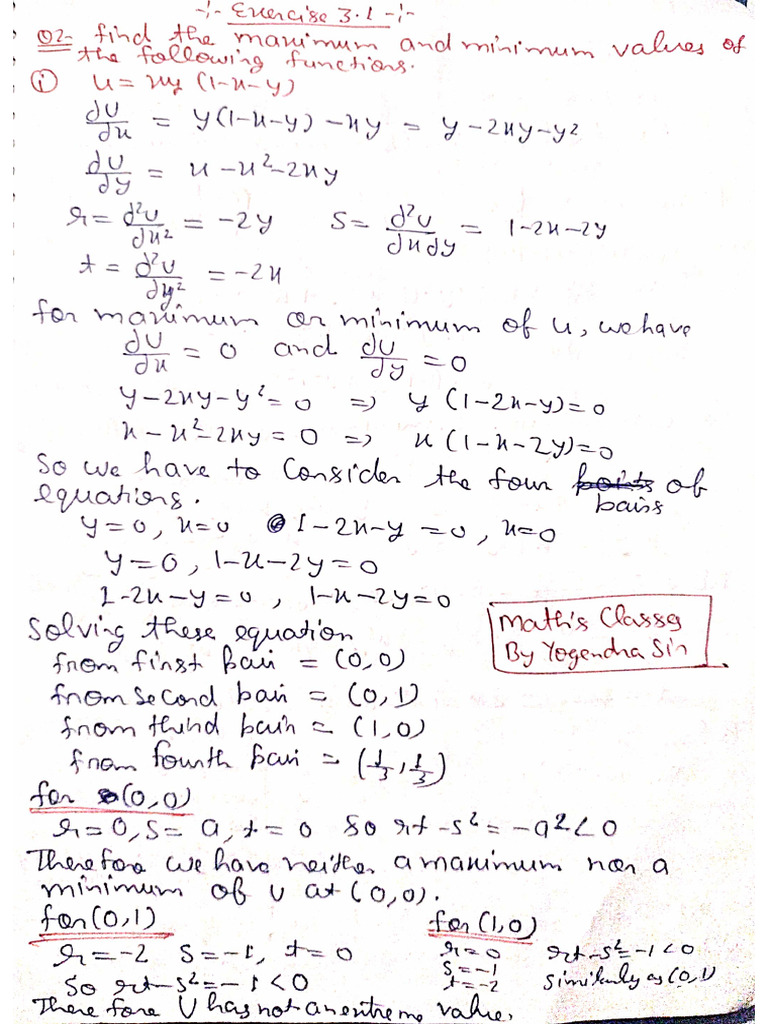 -:- Exercise 3.1 -:-
Q2- find the maximum and minimum values of
the following functions.
(i) u = xy (1-x-y)
∂U/∂x = y(1-x-y) -xy = y-2xy-y²
∂U/∂y = x-x²-2xy
r = ∂²U/∂x² = -2y   S = ∂²U/∂x∂y = 1-2x-2y
t = ∂²U/∂y² = -2x
for maximum or minimum of u, we have
∂U/∂x = 0 and ∂U/∂y = 0
y-2xy-y² = 0 => y (1-2x-y)=0
x-x²-2xy = 0 => x(1-x-2y)=0
So we have to Consider the four pairs of
equations.
y=0, x=0   1-2x-y =0, x=0
y=0, 1-x-2y=0
1-2x-y=0, 1-x-2y=0
Solving these equation
from first pair = (0,0)
from second pair = (0,1)
from third pair = (1,0)
from fourth pair = (1/3, 1/3)
Math's Classes
By Yogendra Sir
for (0,0)
r=0, S= a, t=0 So rt-s² = -a²<0
Therefore we have neither a maximum nor a
minimum of U at (0,0).
for(0,1)
r=-2 S=-1, t=0
So rt-s²=-1<0
for(1,0)
r=0 rt-s²=-1<0
s=-1
t=-2 Similarly as (0,1)
There fore U has not an extreme value.